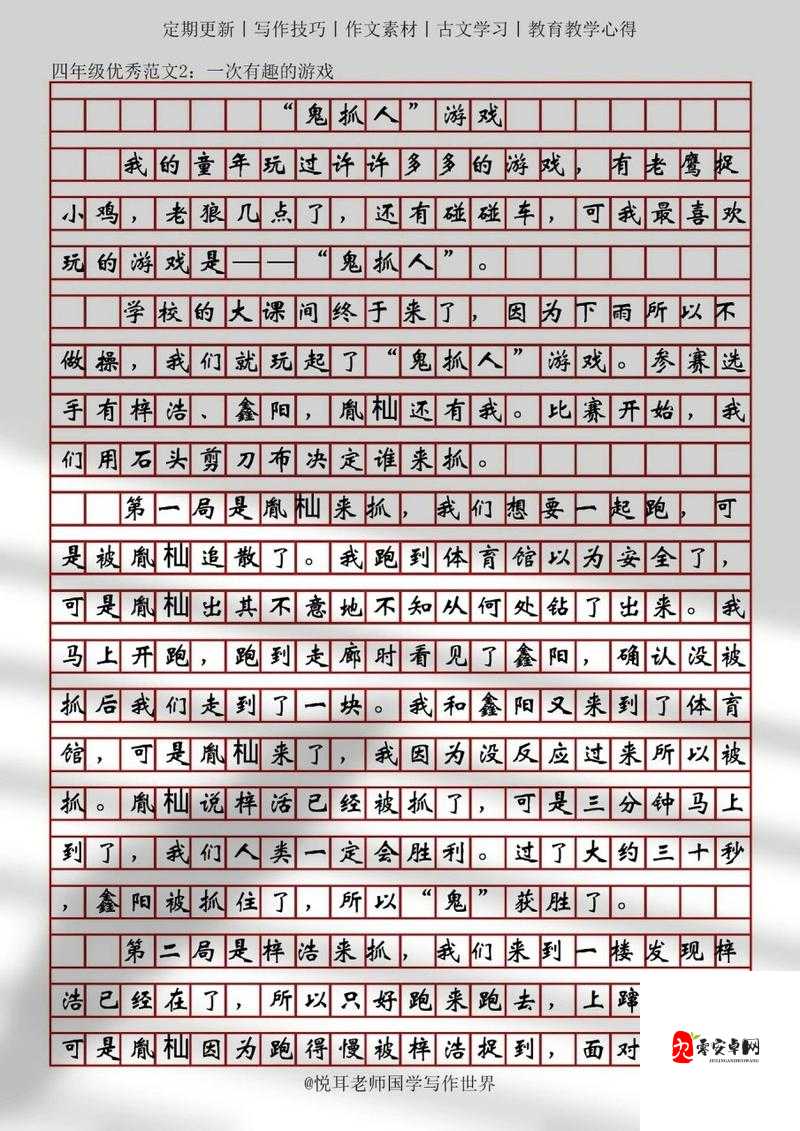 定期更新丨写作技巧丨作文素材丨古文学习丨教育教学心得
四年级优秀范文2：一次有趣的游戏
“鬼抓人”游戏
我的童年玩过许许多多的游戏，有老鹰捉
小鸡，老狼几点了，还有碰碰车，可我最喜欢
玩的游戏是——“鬼抓人”。
学校的大课间终于来了，因为下雨所以不
做操，我们就玩起了“鬼抓人”游戏。参赛选
手有梓浩、鑫阳，胤杣还有我。比赛开始，我
们用石头剪刀布决定谁来抓。
第一局是胤杣来抓，我们想要一起跑，可
是被胤杣追散了。我跑到体育馆以为安全了，
可是胤杣出其不意地不知从何处钻了出来。我
马上开跑，跑到走廊时看见了鑫阳，确认没被
抓后我们走到了一块。我和鑫阳又来到了体育
馆，可是胤杣来了，我因为没反应过来所以被
抓。胤杣说梓活已经被抓了，可是三分钟马上
到了，我们人类一定会胜利。过了大约三十秒
，鑫阳被抓住了，所以“鬼”获胜了。
第二局是梓浩来抓，我们来到一楼发现梓
浩已经在了，所以只好跑来跑去，上蹿
可是胤杣因为跑得慢被梓浩捉到，面对
@悦耳老师国学写作世界
零安卓网